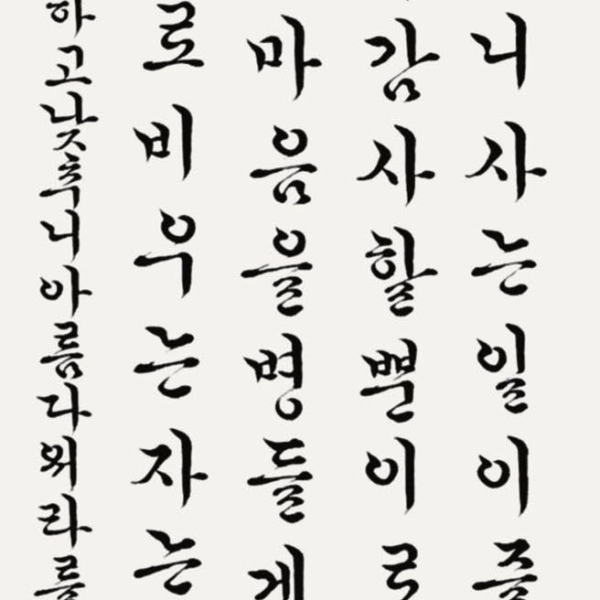 니사는일이즐
감사할뿐이
마음을병들게
로비우는자는
하고낮추니아름다워라